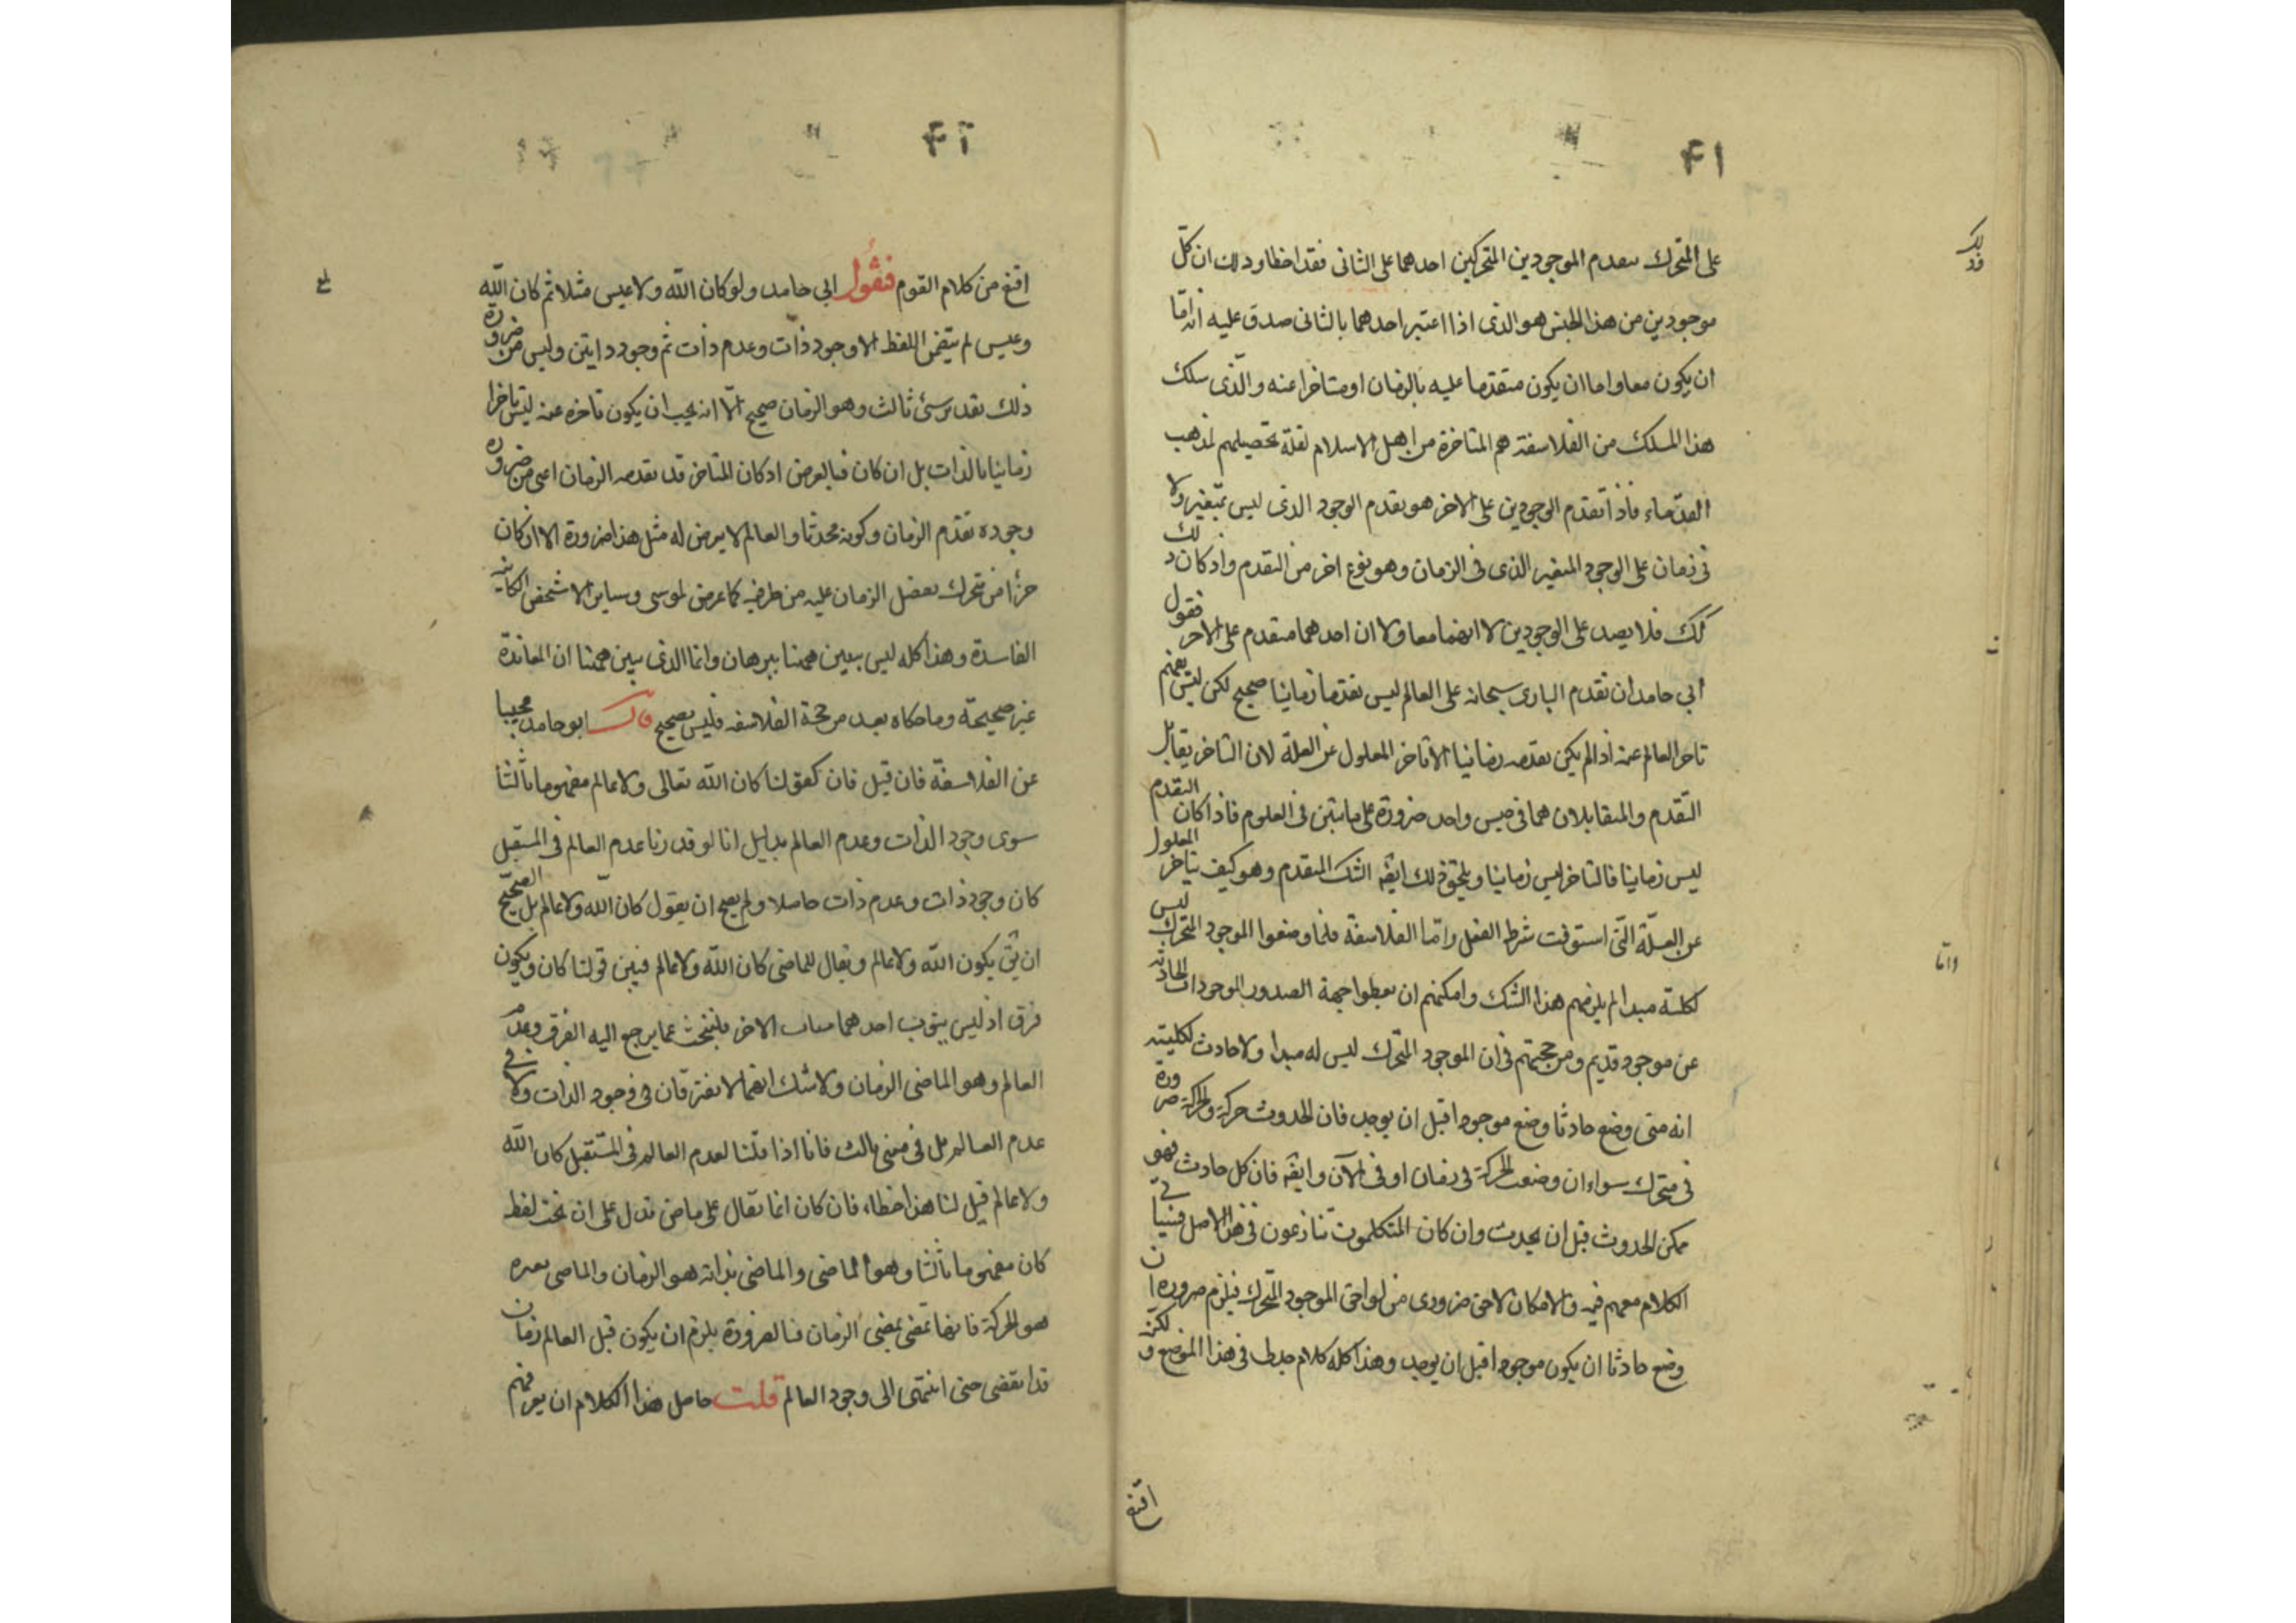 ٤١
على المتحرك بتقدم الموجودين المتحركين احدهما على الثانى فقد اخطا وذلك ان كلّ
موجودين من هذا الجنس هو الذى اذا اعتبر احدهما بالثانى صدق عليه انه امّا
ان يكون معا واما ان يكون متقدما عليه بالزمان او متاخرا عنه والذى سلك
هذا المسلك من الفلاسفة هم المتاخرة من اهل الاسلام لقلة تحصيلهم لمذهب
القدماء فاذا تقدم الوجودين على الاخر هو تقدم الوجود الذى ليس بمتغير ولا
فى زمان على الوجود المتغير الذى فى الزمان وهو نوع اخر من التقدم واذ كان ذلك
كك فلا يصدق على الوجودين لا انهما معا ولا ان احدهما متقدم على الاخر فقول
ابي حامد ان تقدم البارى سبحانه على العالم ليس تقدما زمانيا صحيح لكن ليس يفهم
تاخر العالم عنه اذا لم يكن تقدمه زمانيا الا تاخر المعلول عن العلة لان التاخر يقابل
التقدم والمتقابلان هما فى جنس واحد ضرورة على ما تبين فى العلوم فاذا كان التقدم
ليس زمانيا فالتاخر ليس زمانيا ويلحق ذلك ايضه الشك المتقدم وهو كيف يتاخر المعلول
عن العلّة التى استوفت شرط الفعل وامّا الفلاسفة فلما وضعوا الموجود المتحرك ليس
لكليته مبدا لم يلزمهم هذا الشك وامكنهم ان يعطوا جهة الصدور الموجودات الحادثه
عن موجود قديم ومن حجتهم فى ان الموجود المتحرك ليس له مبدا ولا حادث لكليته
انه متى وضع حادثا وضع موجودا قبل ان يوجد فان الحدوث حركة والحركة ضرورة
فى متحرك سواء ان وضعت الحركة فى زمان او فى الآن وايضه فان كل حادث فهو
ممكن الحدوث قبل ان يحدث وان كان المتكلمون تنازعون فى هذا الاصل فسياتى
الكلام معهم فيه والامكان لاحق ضرورى من لواحق الموجود المتحرك فيلزم ضروره ان
وضع حادثا ان يكون موجودا قبل ان يوجد وهذا كله كلام جدلى فى هذا الموضع ولكنه
اقنع
وامّا
٤٢
اقنع من كلام القوم فقول ابي حامد ولو كان الله ولا عيسى مثلا ثم كان الله
وعيسى لم يتضمن اللفظ الا وجود ذات وعدم ذات ثم وجود ذاتين وليس من ضرورة
ذلك تقدير شئ ثالث وهو الزمان صحيح الّا انه يجب ان يكون تاخره عنه ليس تاخرا
زمانيا بالذات بل ان كان فبالعرض اذ كان المتاخر قد تقدمه الزمان اعنى من ضروره
وجوده تقدم الزمان وكونه محدثا والعالم لا يعرض له مثل هذا ضرورة الا ان كان
جزأ من متحرك يفضل الزمان عليه من طرفيه كما عرض لموسى وساير الاشخاص الكاينه
الفاسدة وهذا كله ليس يبين ههنا ببرهان وانما الذى يبين ههنا ان المعاندة
غير صحيحة وما حكاه بعد من حجة الفلاسفه فليس بصحيح قال ابو حامد مجيبا
عن الفلاسفة فان قيل فان كقولنا كان الله تعالى ولا عالم مفهوما ثالثا
سوى وجود الذات وعدم العالم بدليل انا لو قدرنا عدم العالم فى المستقبل
كان وجود ذات وعدم ذات حاصلا ولم يصح ان يقول كان الله ولا عالم بل الصحيح
ان يق يكون الله ولا عالم ونقال للماضى كان الله ولا عالم فبين قولنا كان ويكون
فرق اذ ليس ينوب احدهما مناب الاخر فلنبحث عما يرجع اليه الفرق وعدم
العالم وهو الماضى الزمان ولا شك انهما لا يفترقان فى وجود الذات ولا فى
عدم العالم بل فى معنى ثالث فانا اذا قلنا لعدم العالم فى المستقبل كان الله
ولا عالم قيل لنا هذا خطاء فان كان انما تقال على ماض تدل على ان تحت لفظ
كان مفهوما ثالثا وهو الماضى والماضى بذاته هو الزمان والماضى بغيره
هو الحركة فانها تمضى بمضى الزمان فبالضرورة يلزم ان يكون قبل العالم زمان
قد انقضى حتى انتهى الى وجود العالم قلت حاصل هذا الكلام ان يعرفهم